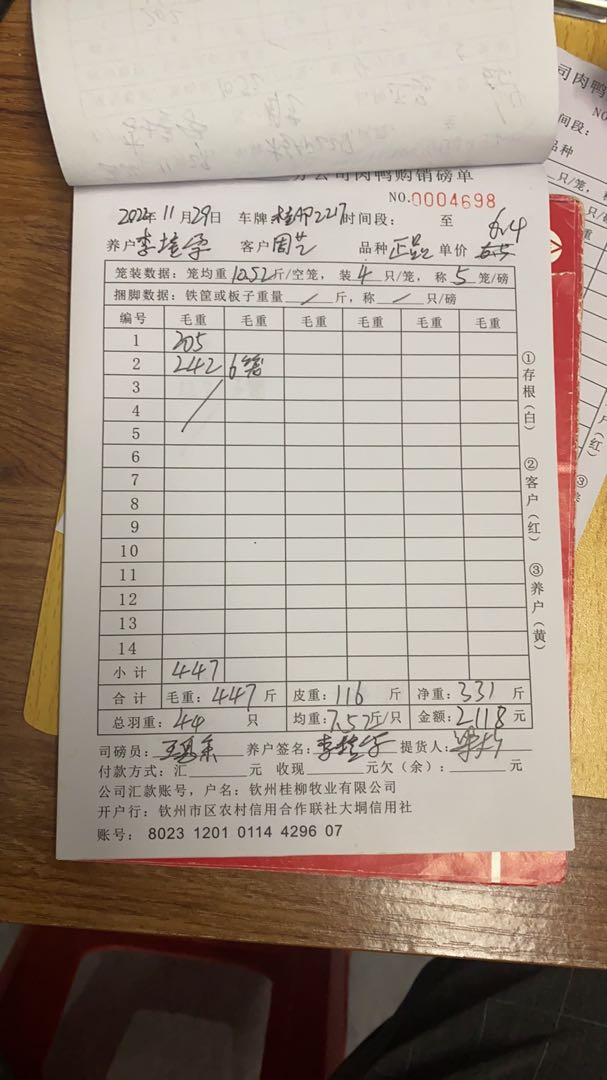 公司肉鸭购销磅单
NO.0004698
2022年11月29日 车牌 桂 2217 时间段: 至
养户 李 客户 周艺 品种 正品 单价 6.4
笼装数据: 笼均重 10.52 斤/空笼, 装 4 只/笼, 称 5 笼/磅
捆脚数据: 铁筐或板子重量 / 斤, 称 / 只/磅
编号 毛重 毛重 毛重 毛重 毛重 毛重
1 205
2 242 6笼
3
4
5
6
7
8
9
10
11
12
13
14
小计 447
合计 毛重: 447 斤 皮重: 116 斤 净重: 331 斤
总羽重: 44 只 均重: 7.52斤/只 金额: 2118 元
司磅员: 王 养户签名: 李 提货人:
付款方式: 汇 元 收现 元欠(余): 元
公司汇款账号, 户名: 钦州桂柳牧业有限公司
开户行: 钦州市区农村信用合作联社大垌信用社
账号: 8023 1201 0114 4296 07
①存根(白)
②客户(红)
③养户(黄)
司肉鸭
NO
间段:
品种
只/笼,
只/磅
毛重
(红)
③